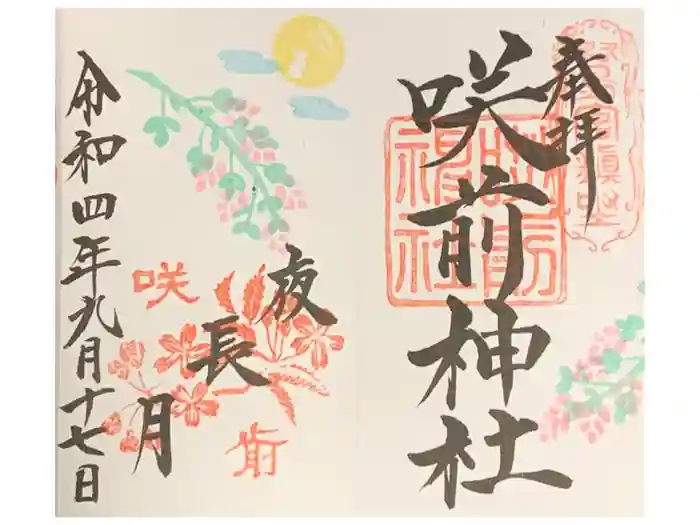 奉拝
咲前神社
咲前神社
夜長月
咲
前
令和四年九月十七日